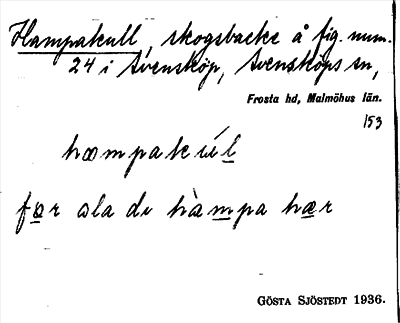 Hampakull, skogsbacke å fig. num.
24 i Svensköp, Svensköps sn,
Frosta hd, Malmöhus län.
153
hampakúl
fær ola di hàmpa hær
GÖSTA SJÖSTEDT 1936.